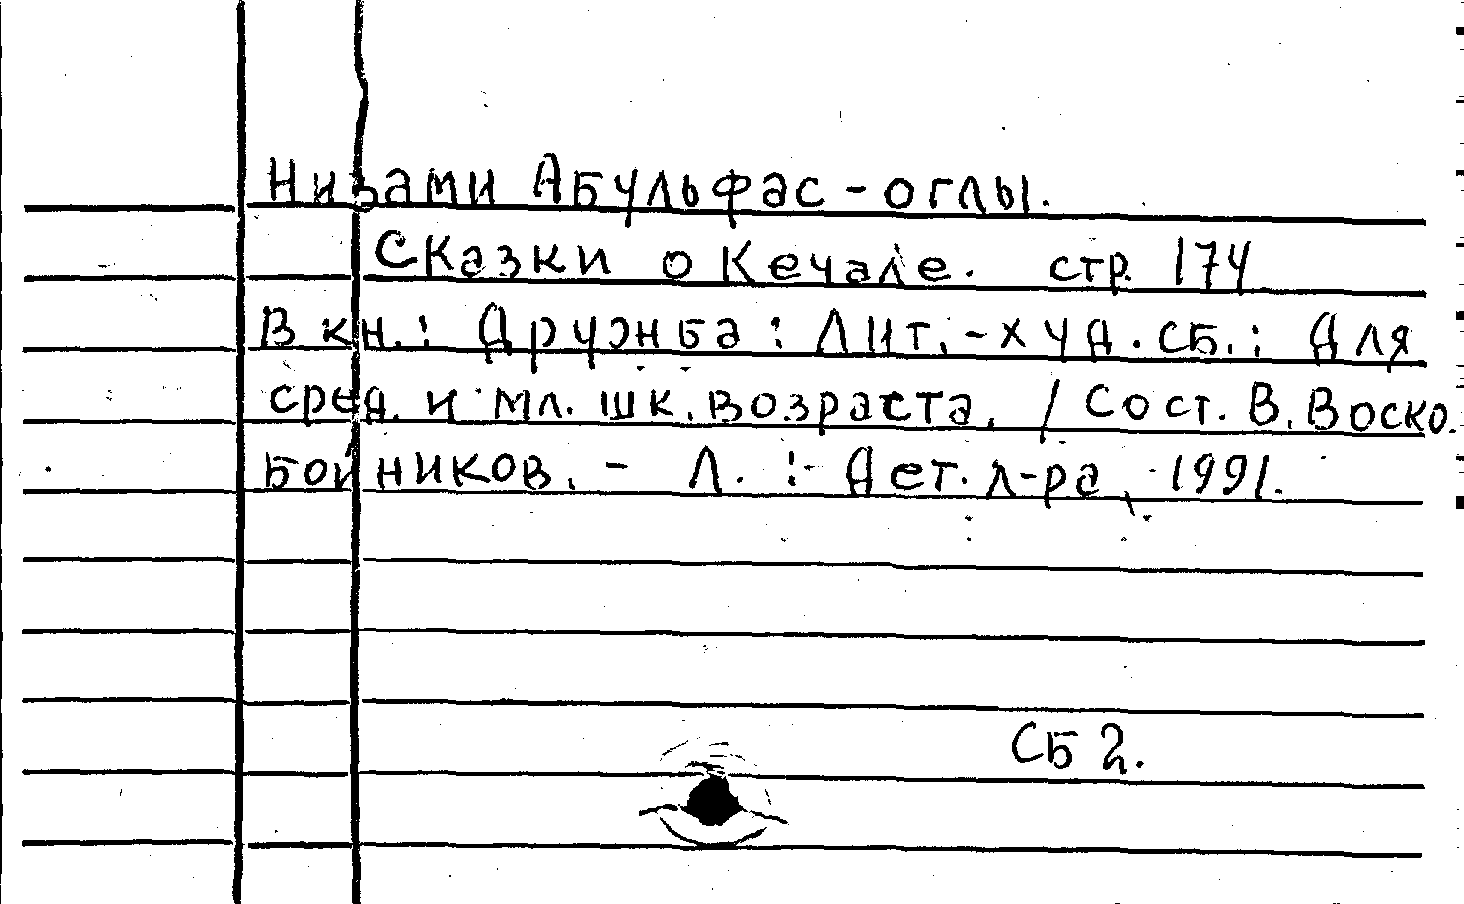 Низами Абульфас-оглы.
Сказки о Кечале. стр. 174
В кн.: Дружба: Лит.-худ. сб.: Для
сред. и мл. шк. возраста. / Сост. В. Воско.
бойников. - Л.: Дет. л-ра, 1991.
СБ 2.